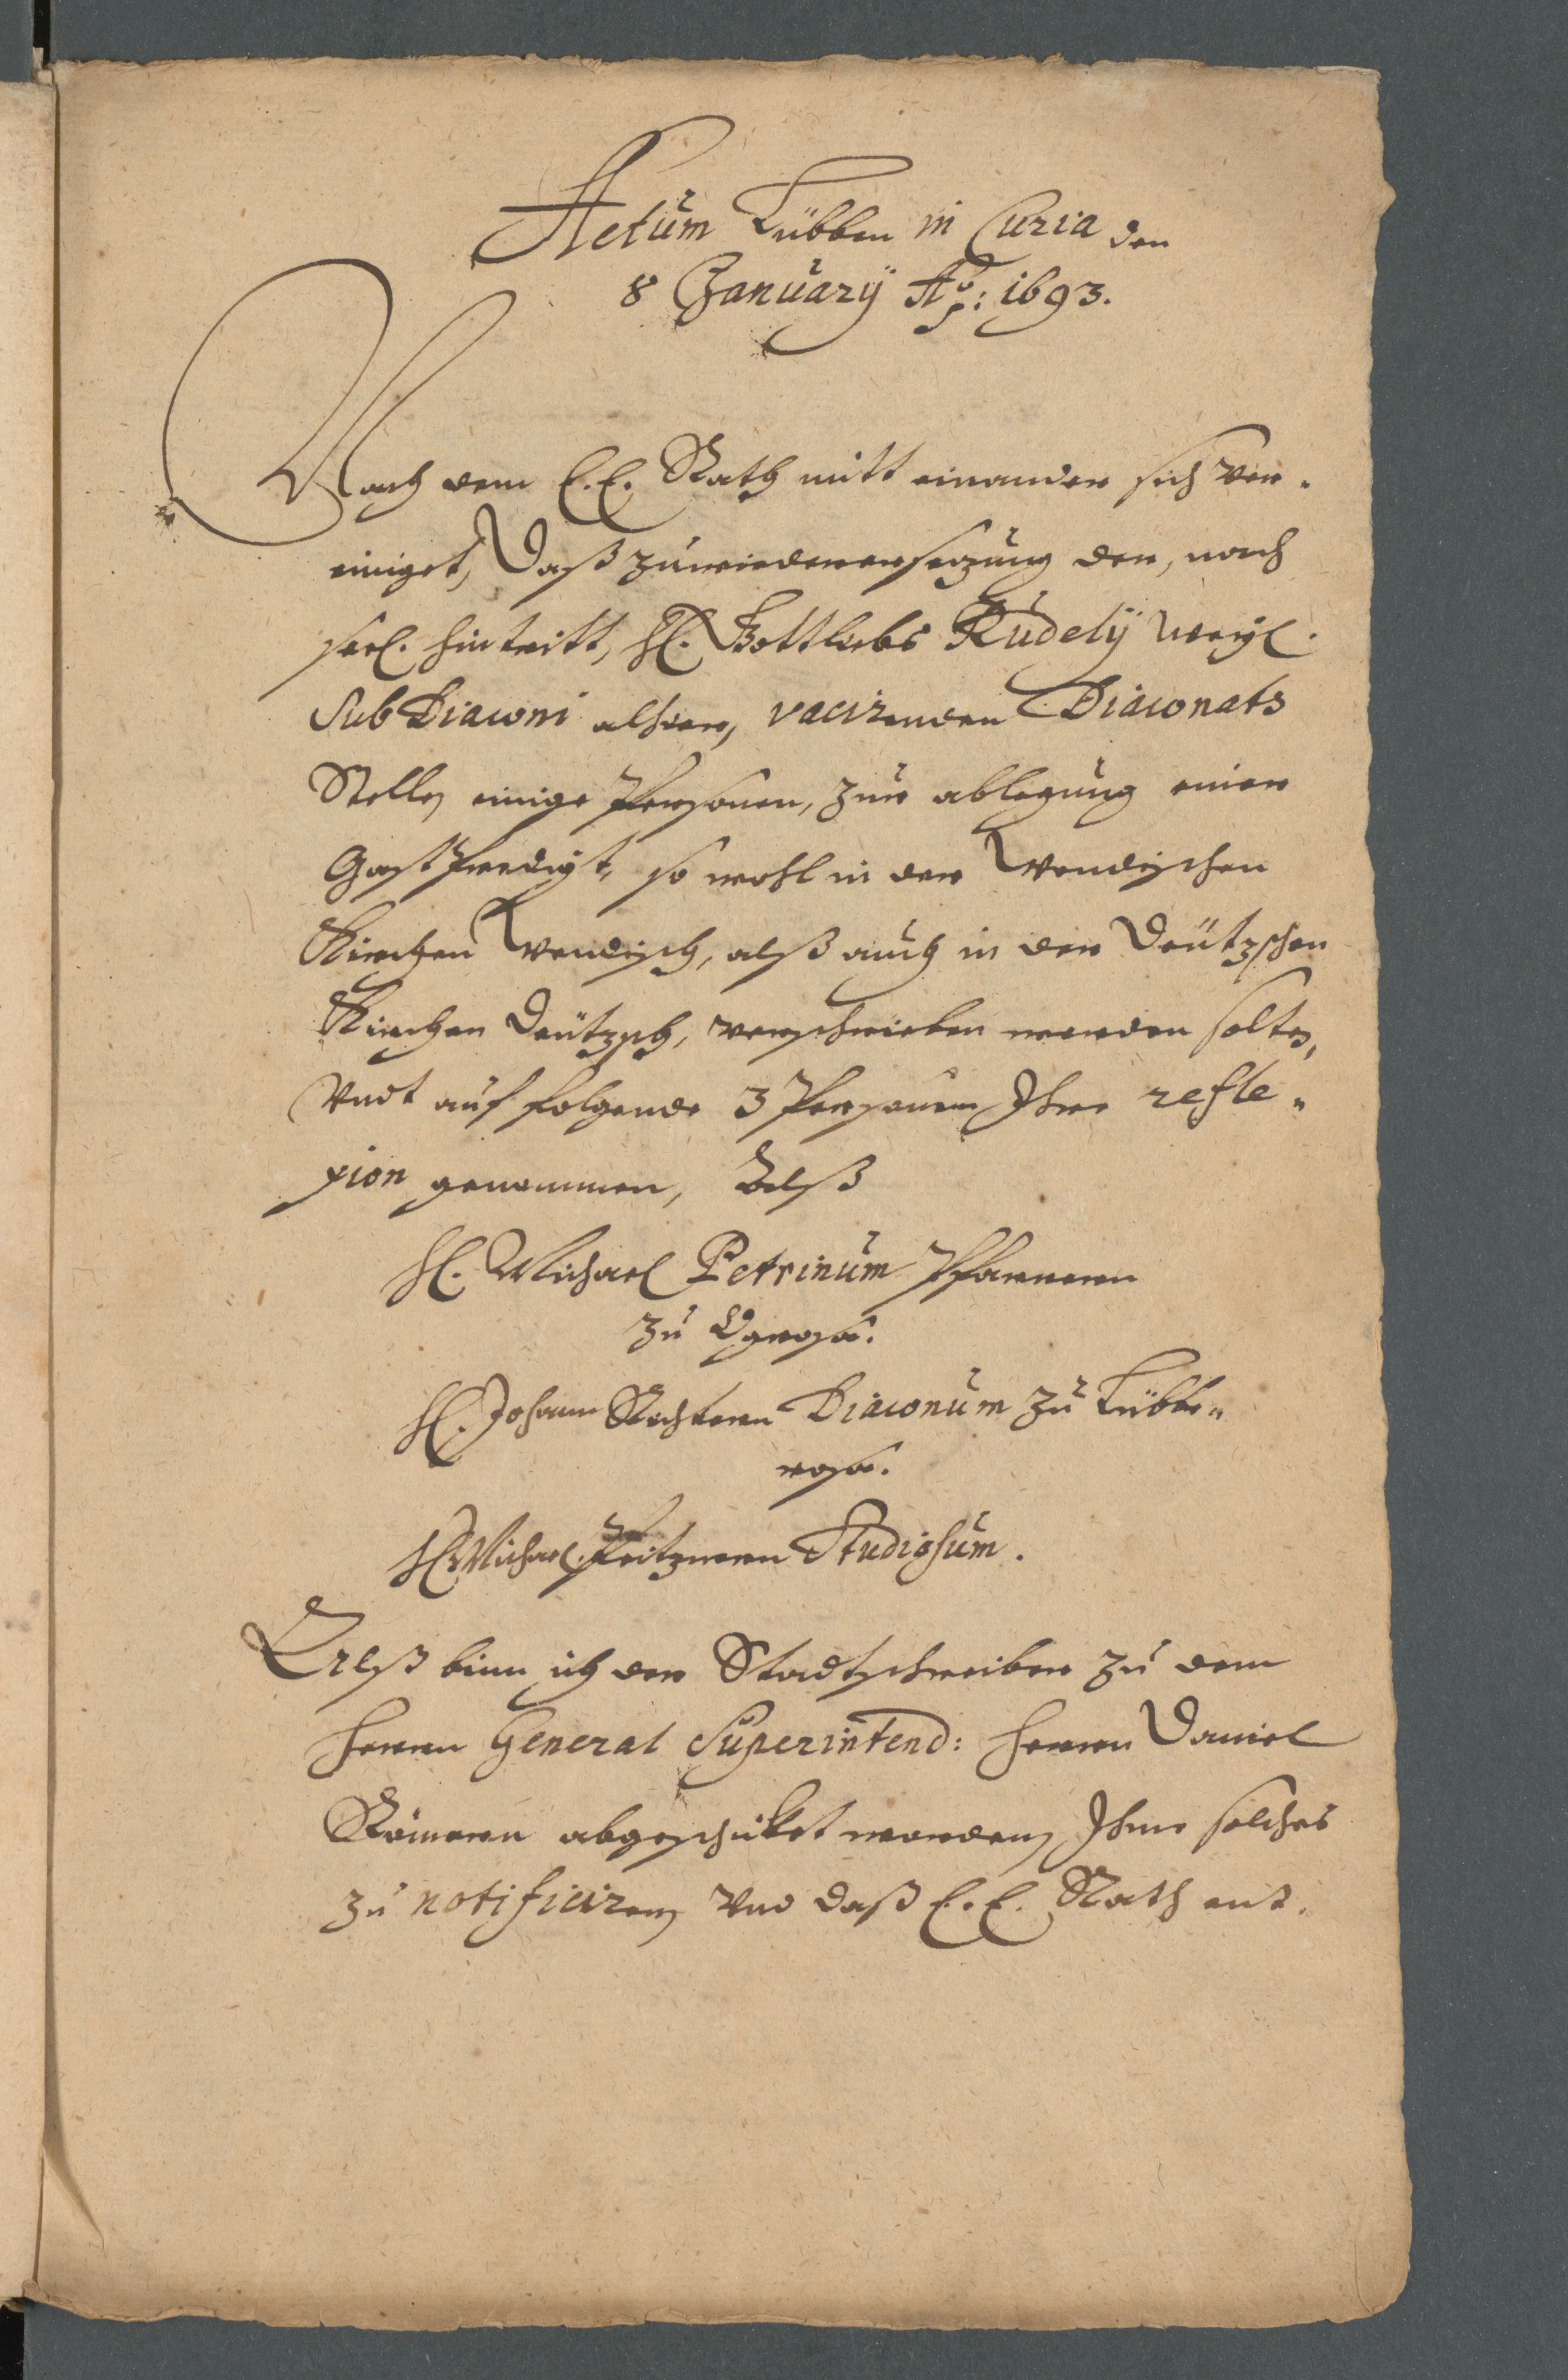 Actum Lübben in Curia den
8 January Ao: 1693.
Nach dem E. E. Rath mitt einander sich ver-
einiget, Daß zu wiederersezung der, nach
seel. hintritt, H. Gottliebs Rudely weyl.
SubDiaconi alhier, vacirenden Diaconats
Stelle, einige Personen, zur ablegung einer
GastPredigt, so wohl in der Wendischen
Kirchen Wendisch, alß auch in der Deützschen
Kirchen Deützsch, verschrieben werden solte,
Undt auf folgende 3 Personen Ihre refle-
xion genommen, Alß
H. Michael Petrinum Pfarrern
zu Ogrosa.
H. Johann Richtern Diaconum zu Lübbe-
nosa.
H. Michael Peitznern Studiosum.
Alß binn ich der Stadtschreiber zu dem
Herrn General Superintend: Herrn Daniel
Römern abgeschicket worden, Ihme solches
zu notificiren, Und daß E. E. Rath ent-